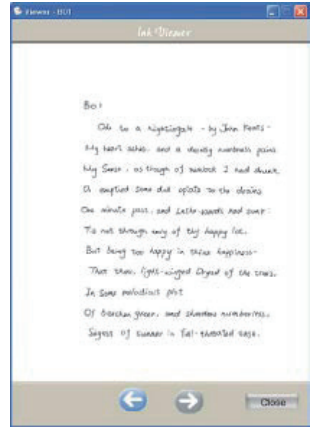 Viewer - B01
Ink Viewer
B01
Ode to a nightingale - by John Keats -
My heart aches, and a drowsy numbness pains
My Sense, as though of hemlock I had drunk
Or emptied some dull opiate to the drains
One minute past, and Lethe-wards had sunk:
Tis not through envy of thy happy lot.
But being too happy in thine happiness-
That thou, light-winged Dryad of the trees.
In some melodious plot
Of beechen green, and shadows numberless,
Singest of summer in full-throated ease.
Close